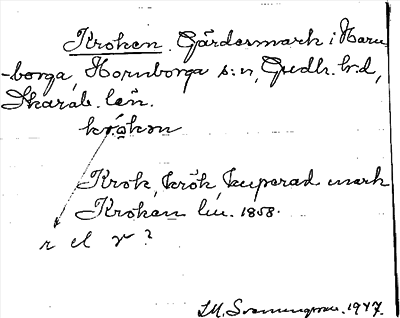 Kroken. Gärdesmark i Horn
-borga, Hornborga s:n, Gudh. h:d,
Skarab. län.
krökən
Krok, krök, kuperad mark
Kroken lm. 1858.
r el r ?
1947.